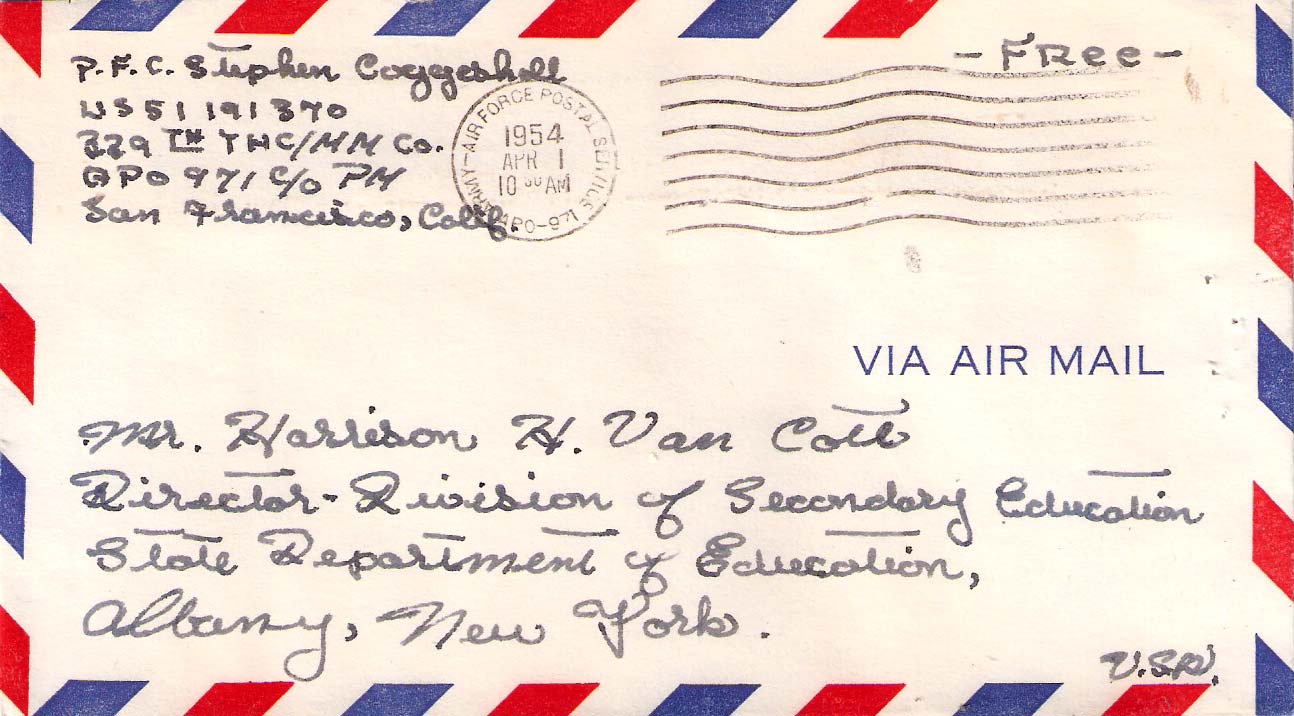 P.F.C. Stephen Coggeshall
US 51 191 370
329 TH THC/MM Co.
APO 971 C/O PM
San Francisco, Calif.
- FRee -
ARMY-AIR FORCE POSTAL SERVICE
1954
APR 1
10 30 AM
APO-971
VIA AIR MAIL
Mr. Harrison H. Van Cott
Director - Division of Secondary Education
State Department of Education,
Albany, New York.
U.S.A.